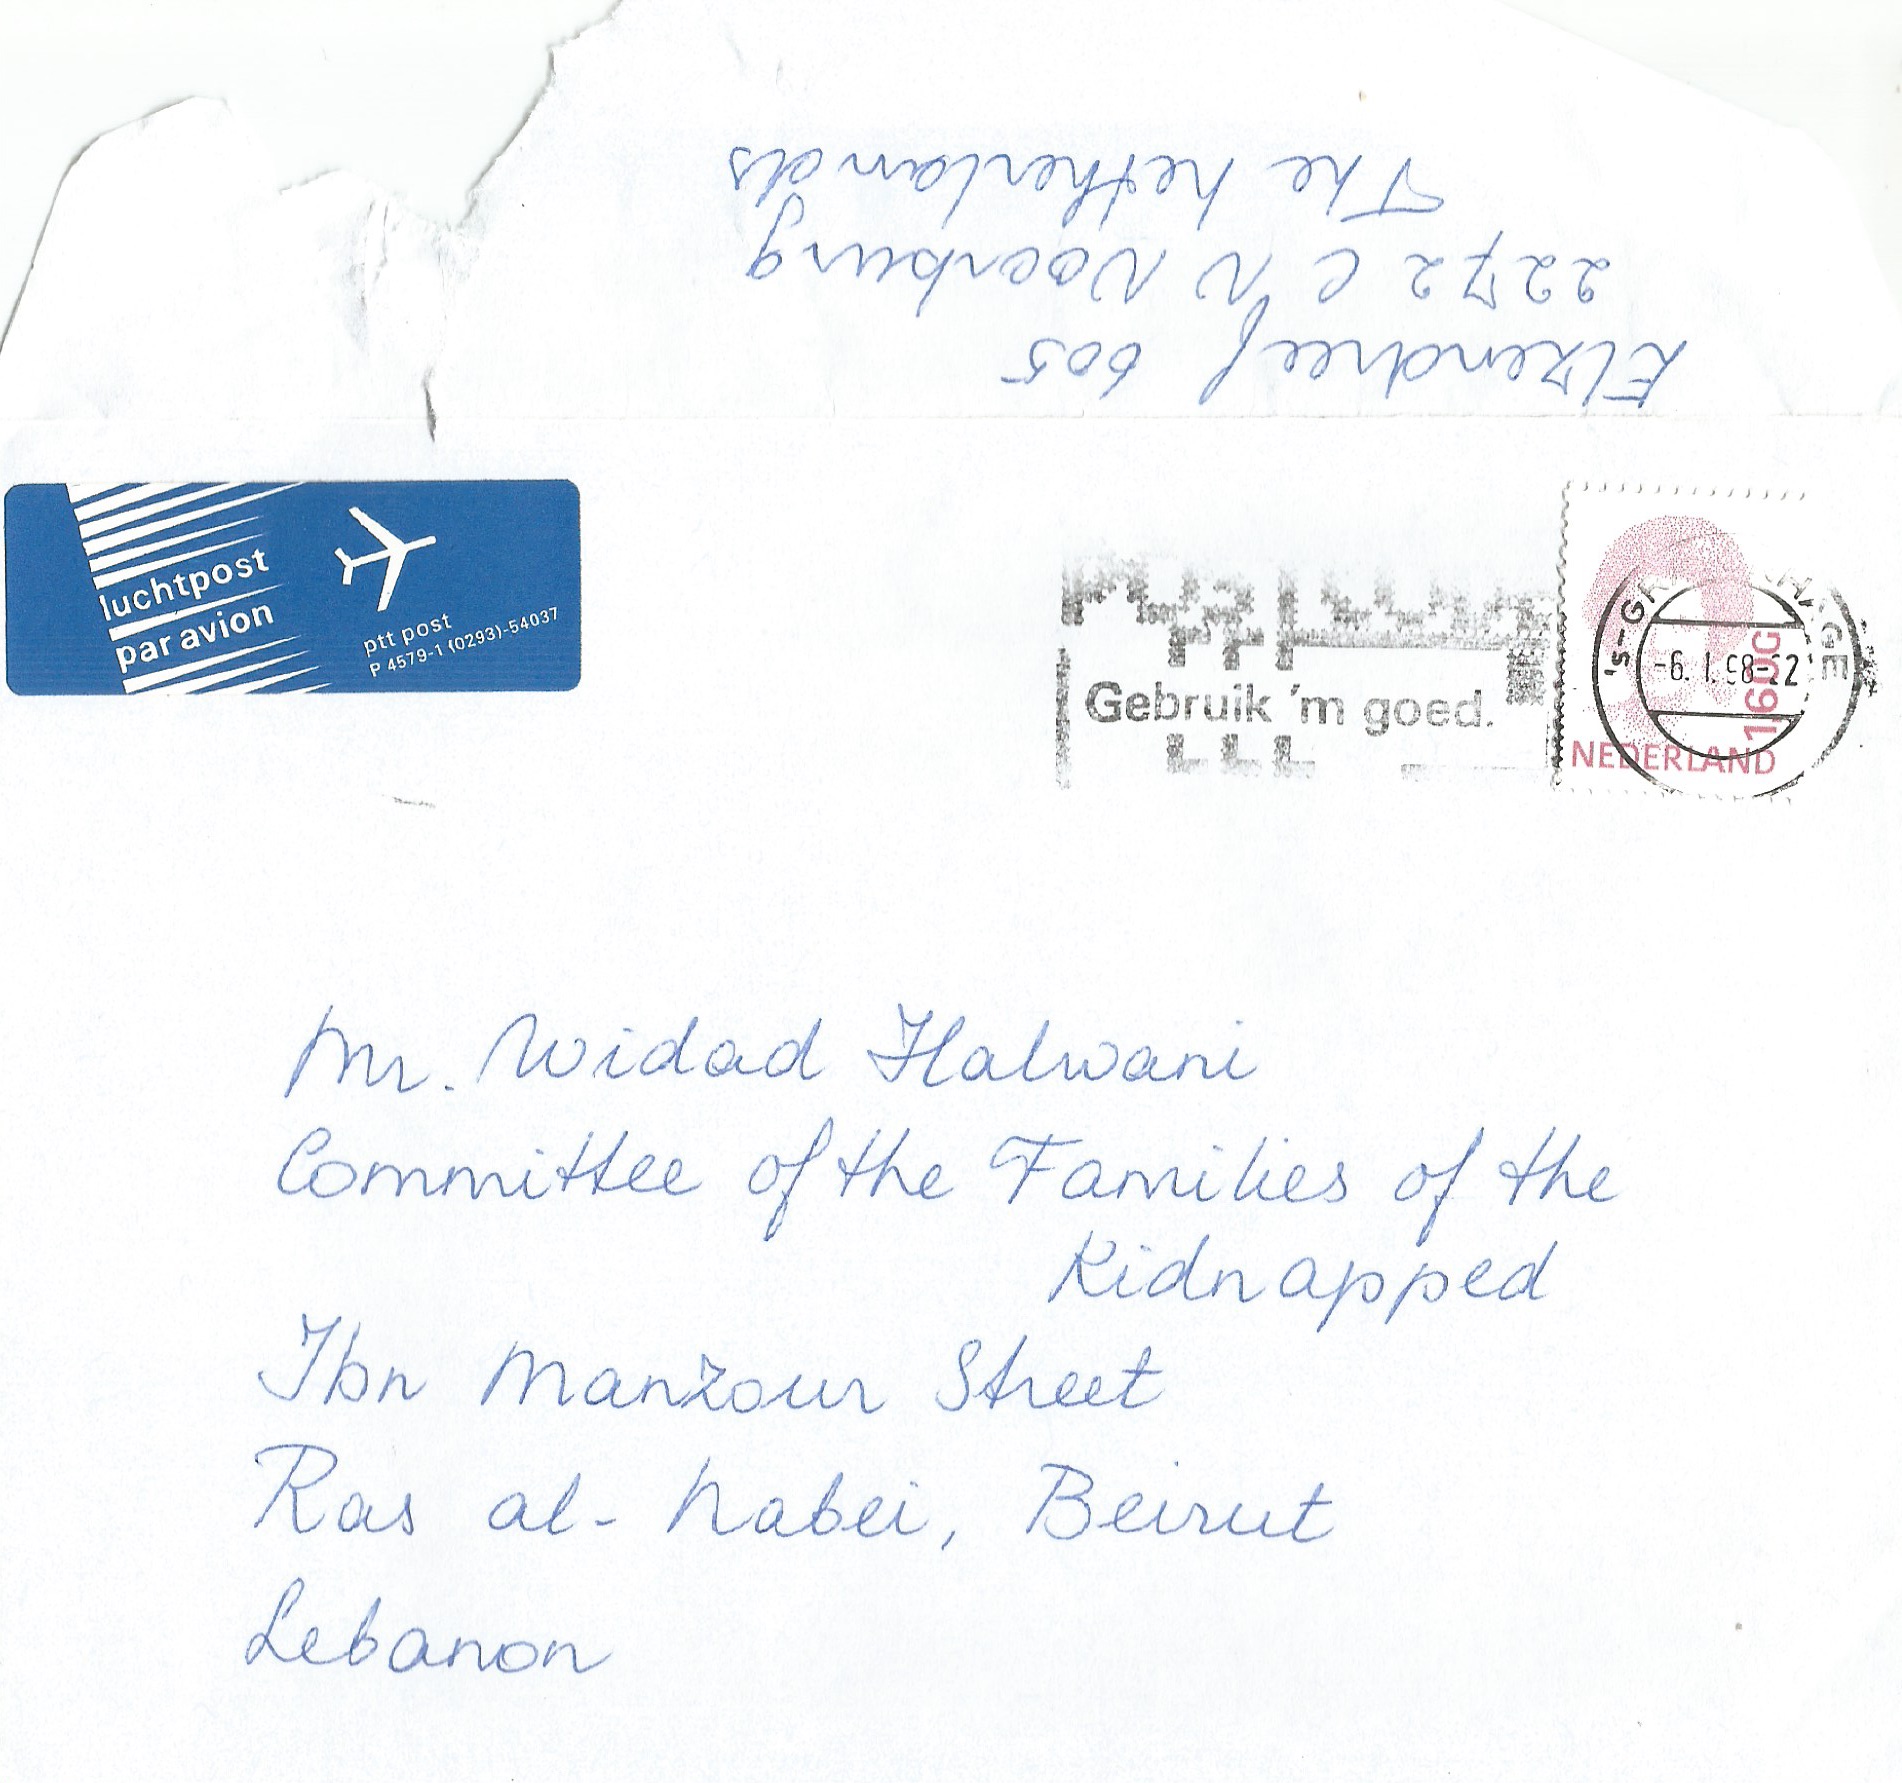 Elzendreef 605
2272 CN Voorburg
The Netherlands
luchtpost
par avion
ptt post
P 4579-1 (0293)-54037
Gebruik 'm goed.
-6.1.98-
160G
NEDERLAND
Mr. Widad Halwani
Committee of the Families of the
Kidnapped
Ibn Manzour Street
Ras al-Nabei, Beirut
Lebanon